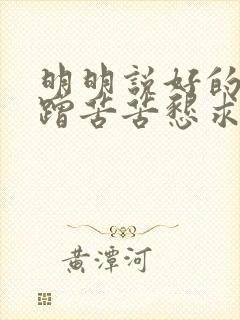 明明説好的
蹭苦苦懇求
黄潭河